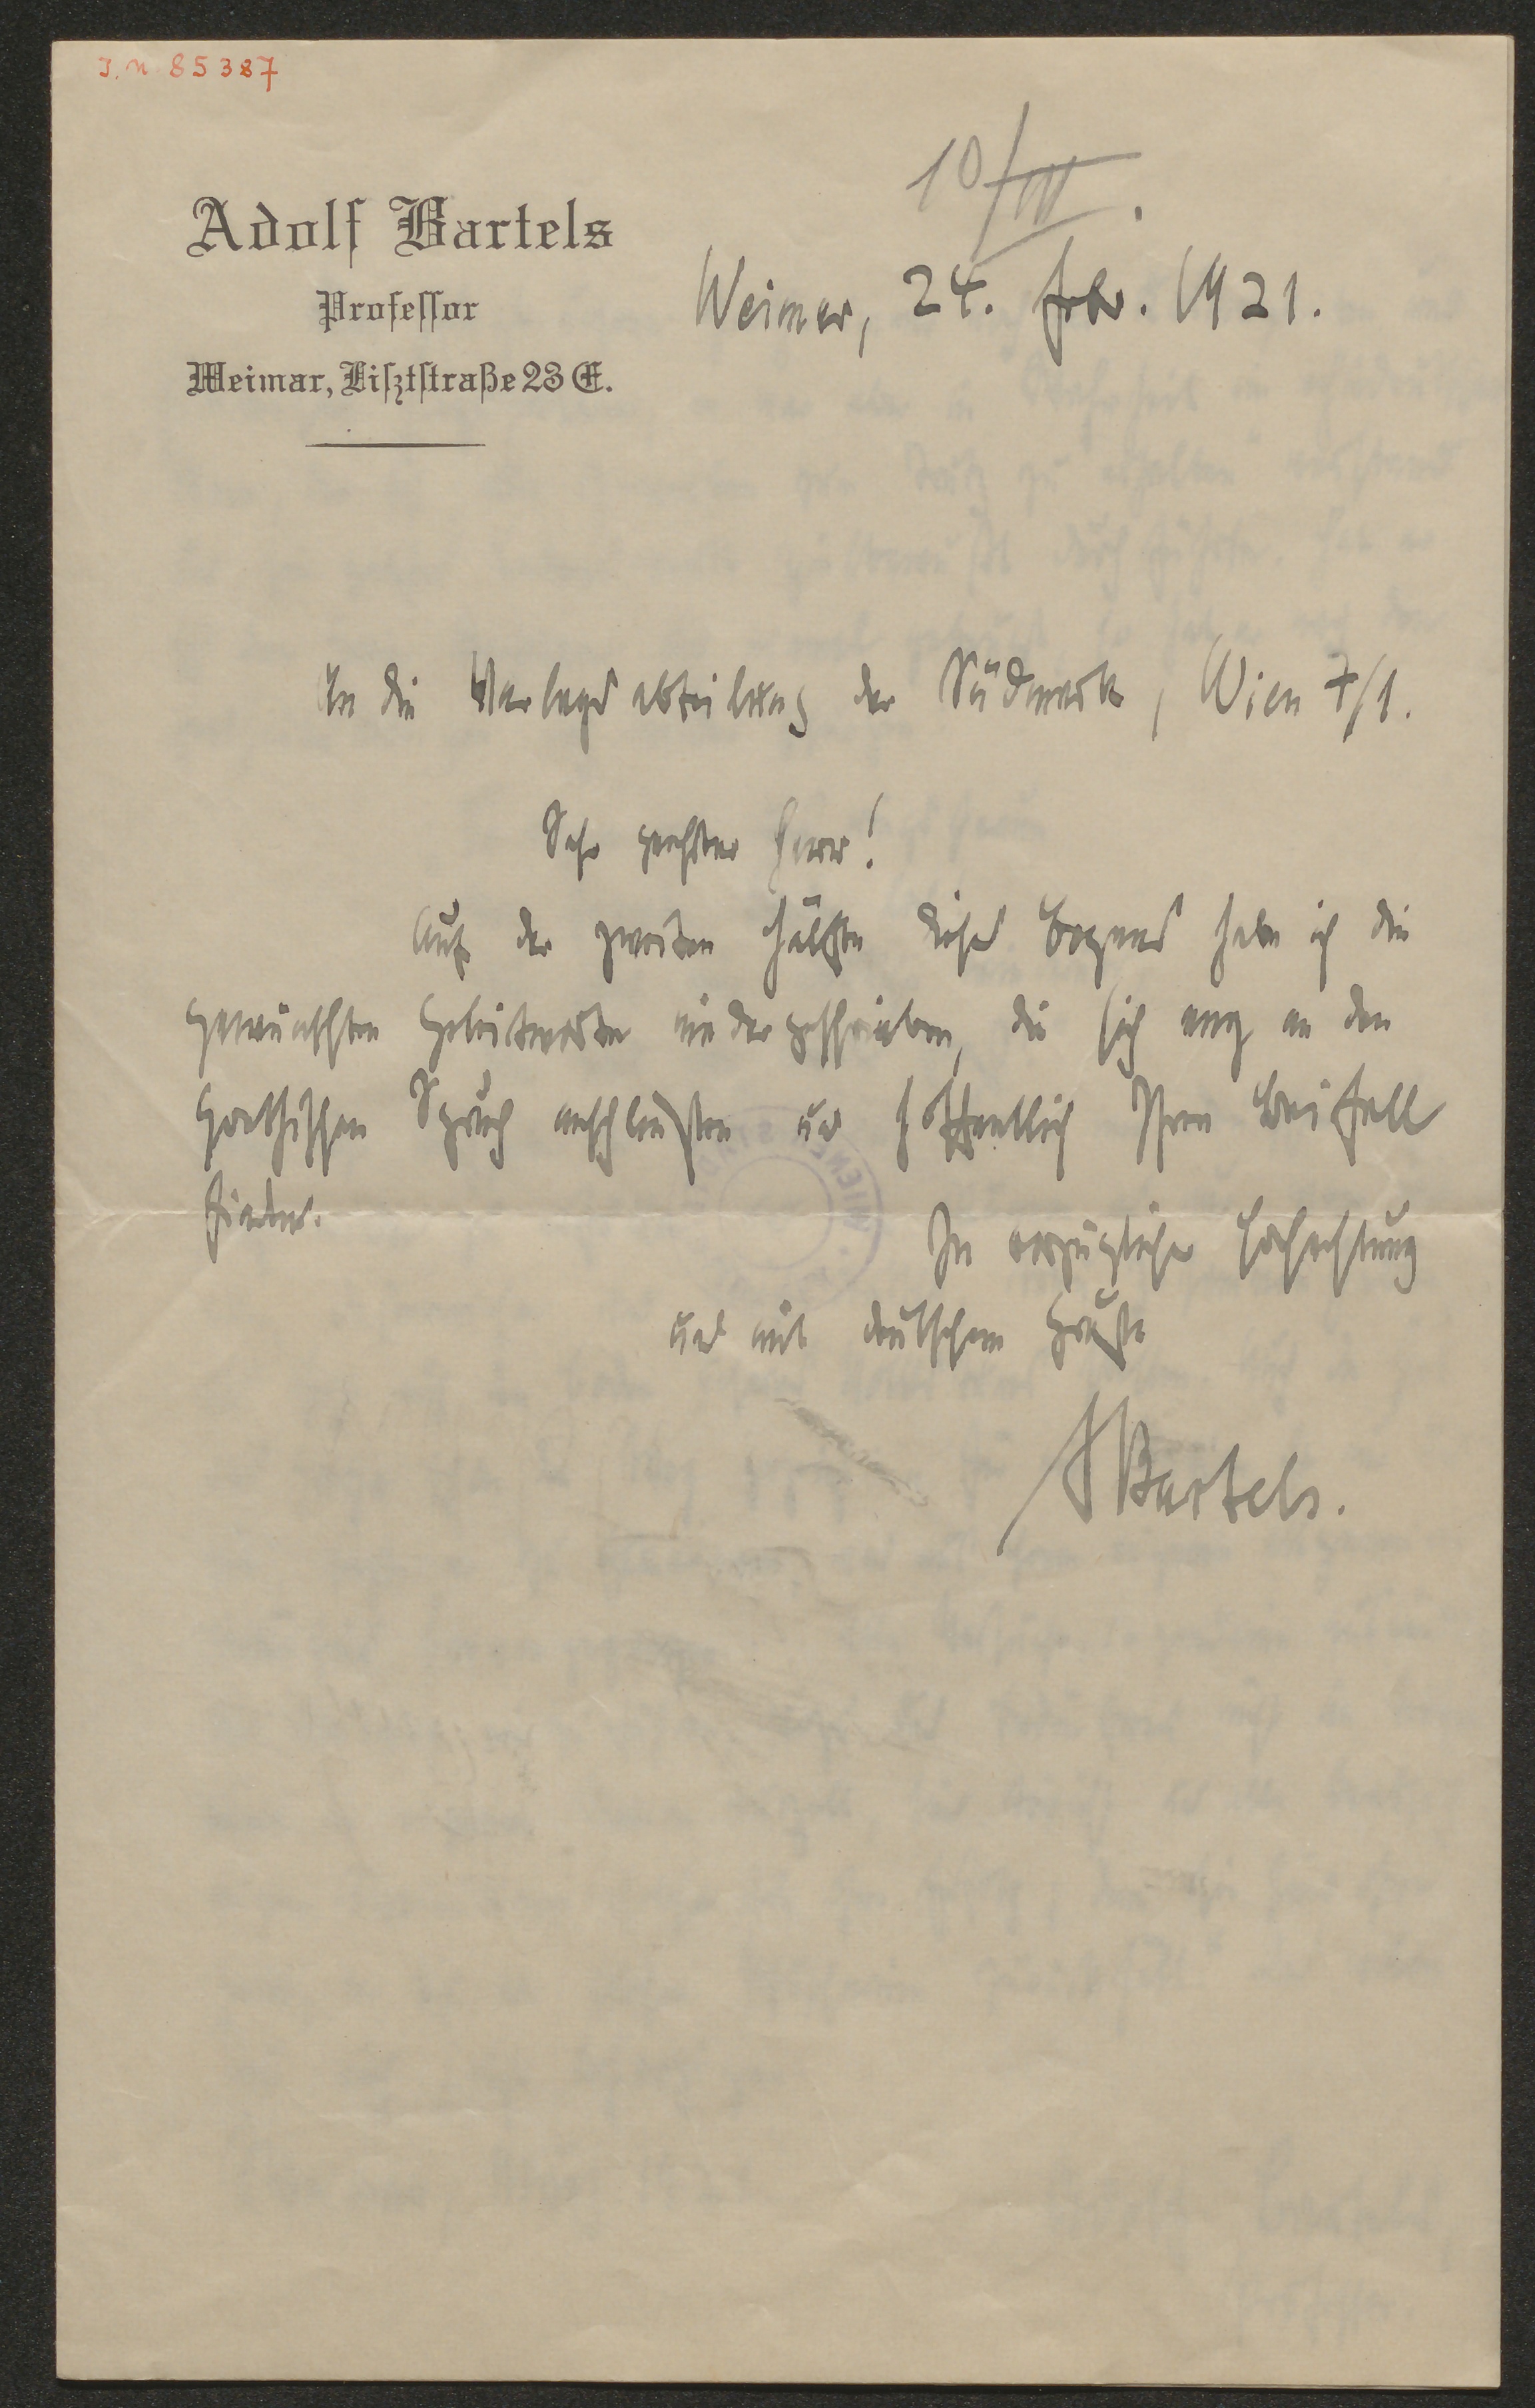 J. N. 85387
10/III.
Adolf Bartels
Professor
Weimar, Lisztstraße 23 E.
Weimar, 24. Febr. 1921.
An die Verlagsabteilung der Südmark, Wien 7/1.
Sehr geehrter Herr!
Auf der zweiten Hälfte dieses Bogens habe ich die
gewünschten Geleitworte niedergeschrieben, die sich eng an den
Goethischen Spruch anschließen und hoffentlich Ihren Beifall
finden.
In vorzüglicher Hochachtung
und mit deutschem Gruße
ABartels.
WIENER